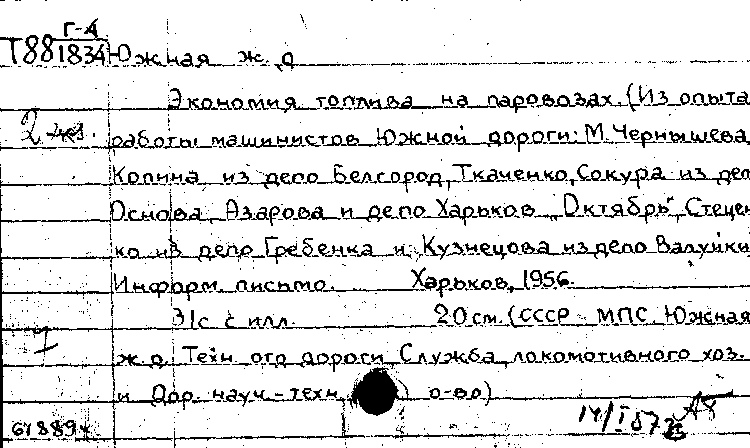 Г-4
Т88 1834 Южная ж. д.
Экономия топлива на паровозах. (Из опыта
2 экз. работы машинистов Южной дороги: М. Чернышева,
Копина из депо Белгород, Ткаченко, Сокура из деп
Основа, Азарова и депо Харьков „Октябрь", Стецен-
ко из депо Гребенка и Кузнецова из депо Валуйки
Информ. письмо. Харьков, 1956.
31с. с илл. 20 см. (СССР МПС. Южная
1 ж. д. Техн. отд дороги, Служба локомотивного хоз.
и Дор. науч.-техн. о-во)
61889 14/I 57